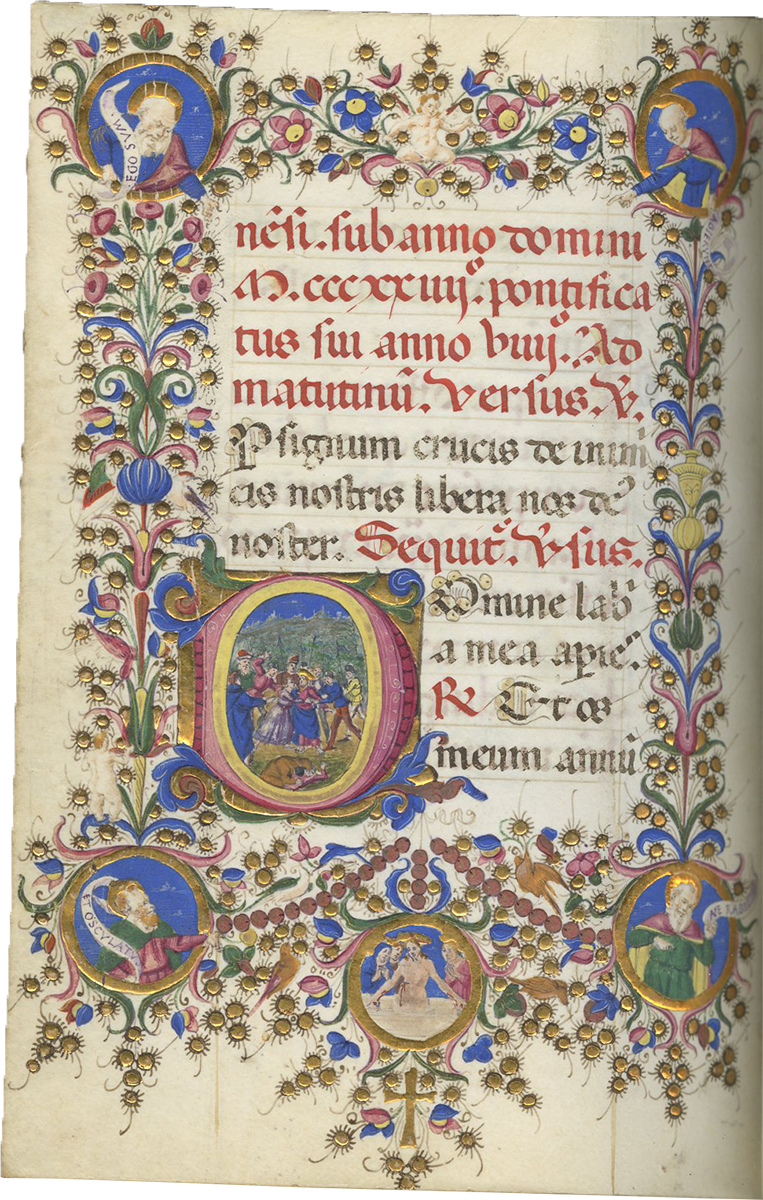 EGO SVM
nēsi. sub anno domini
M. cccxxiiijº. pontifica
tus sui anno viiijº. Ad
matutinū. Versus. V̄.
P signum crucis de inimi
cis nostris libera nos de⁹
noster. Sequit̄. V̄sus.
Domine lab̄
a mea apie⁹.
R Et os
meum annū
ET OSCVLAT